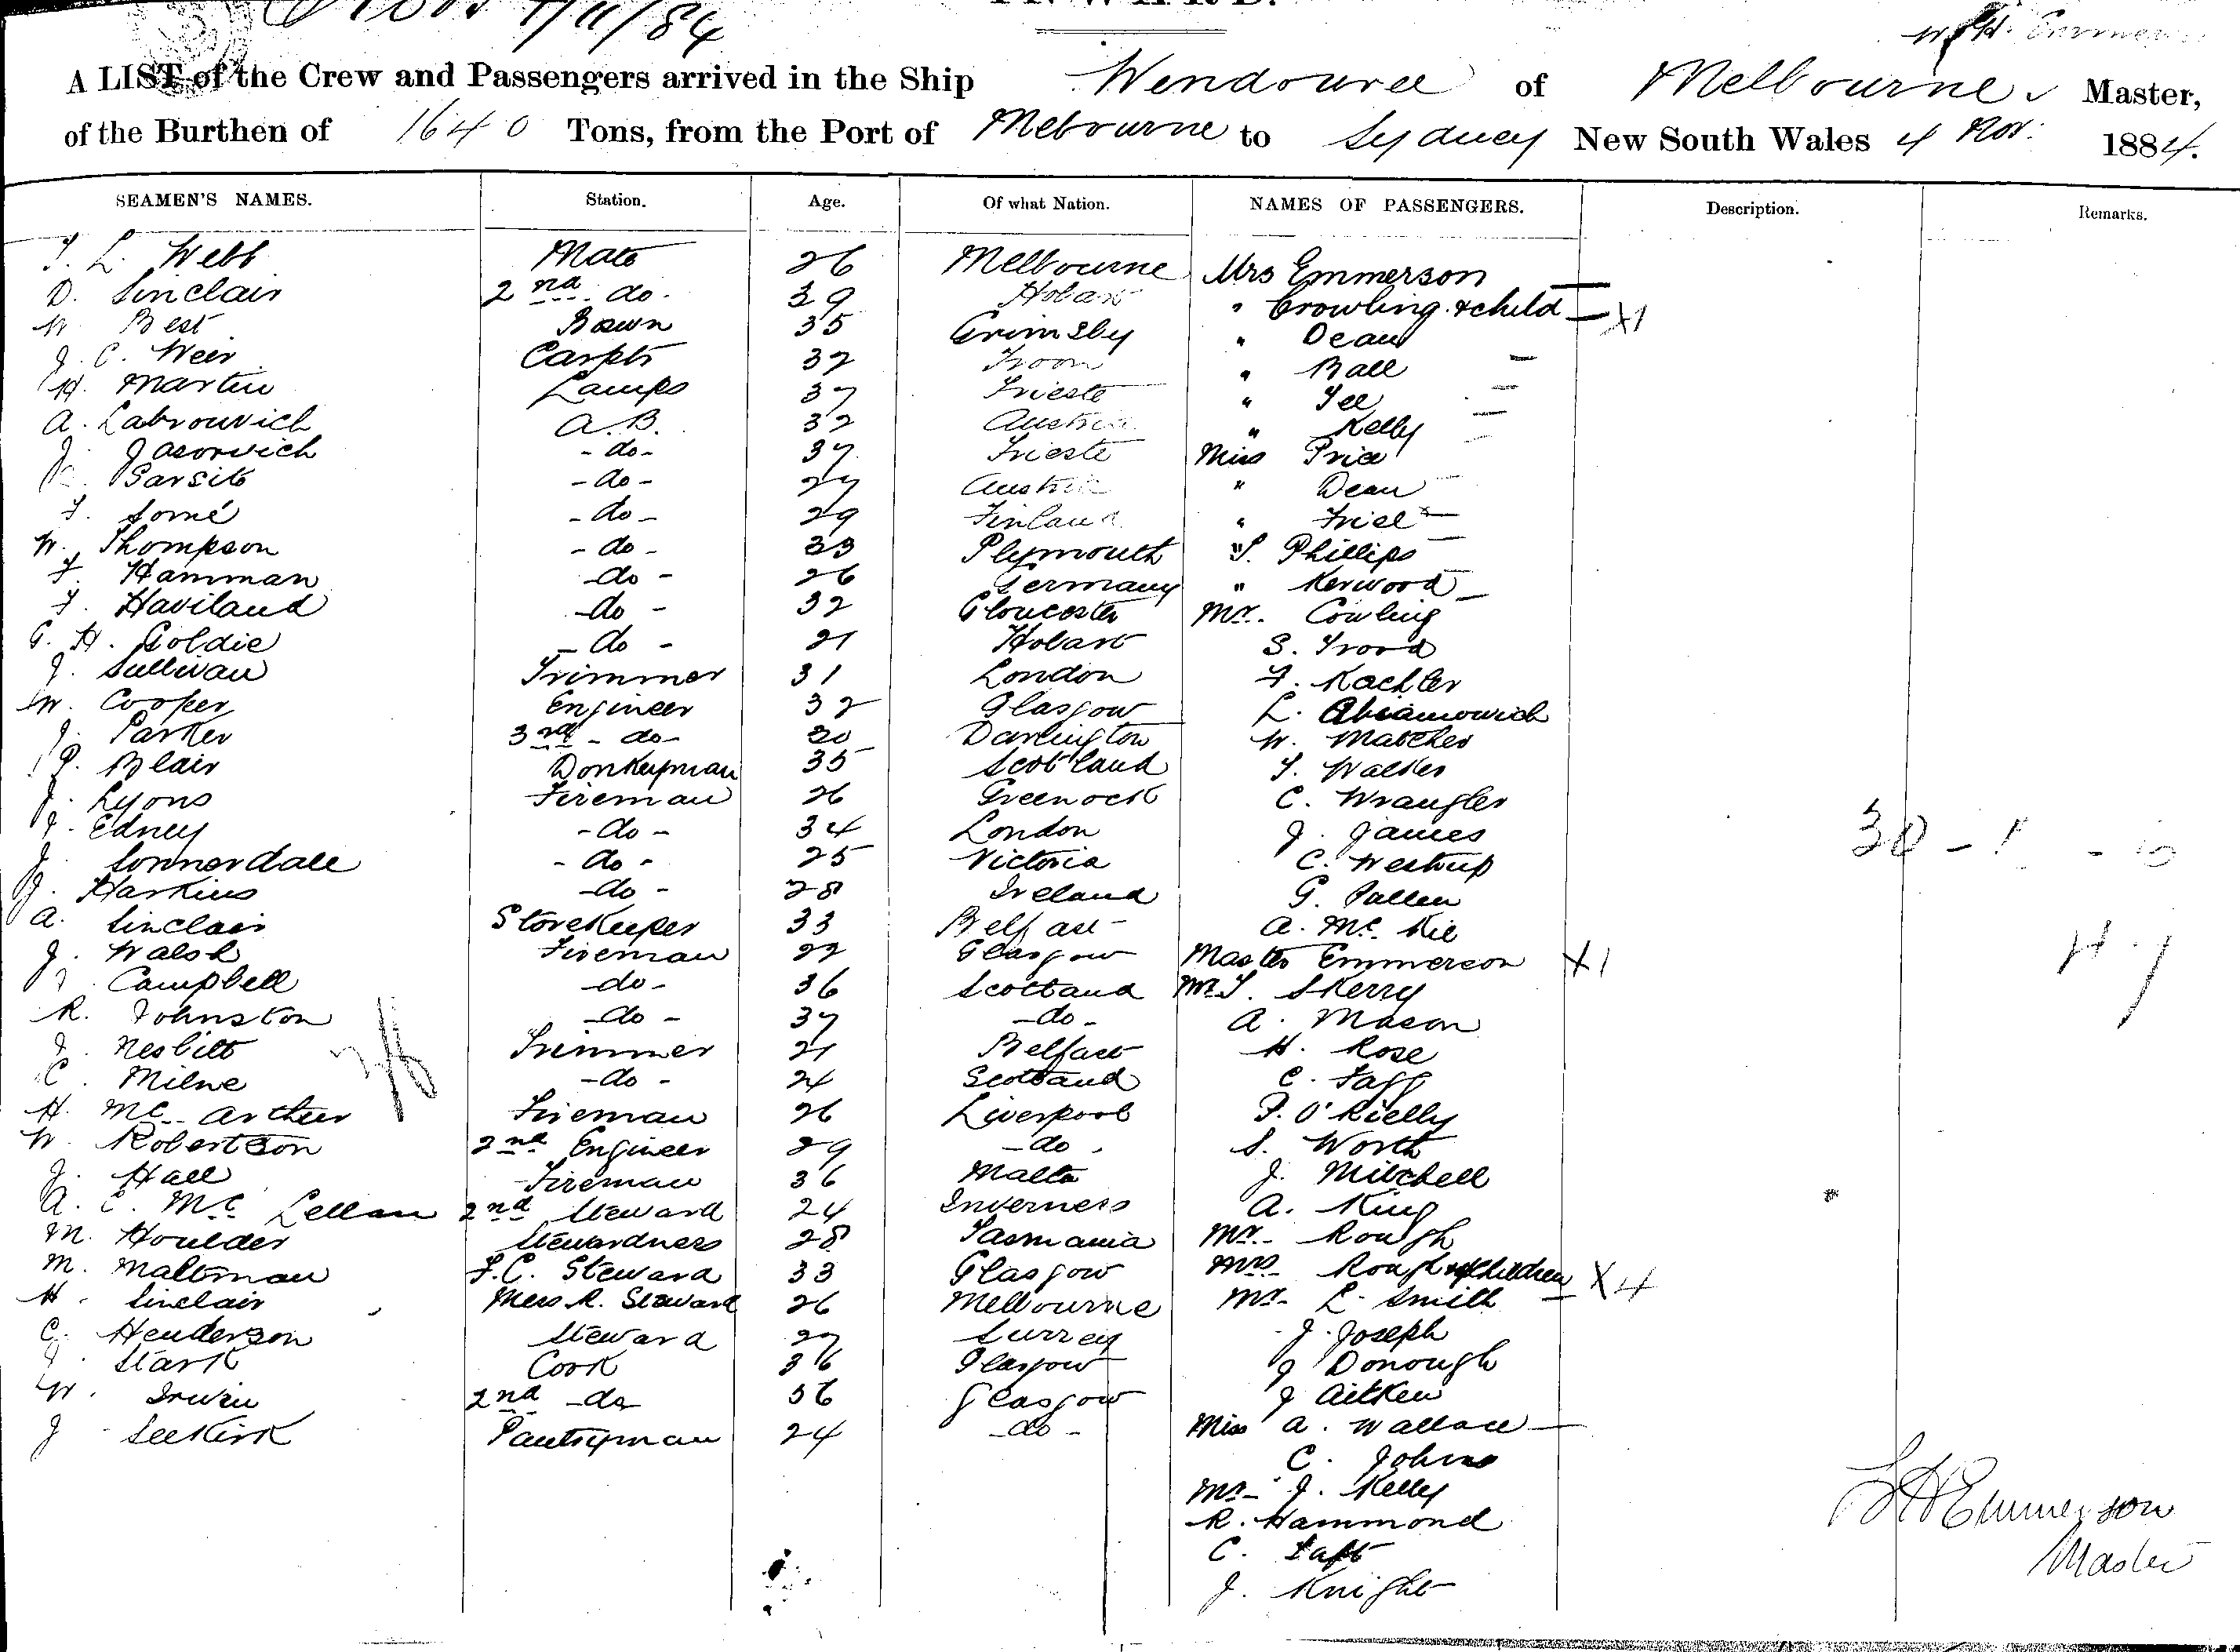 4/11/84
A LIST of the Crew and Passengers arrived in the Ship Wendouree of Melbourne, Master,
of the Burthen of 1640 Tons, from the Port of Mebourne to Sydney New South Wales 4 Nov: 1884.
SEAMEN'S NAMES. Station. Age. Of what Nation. NAMES OF PASSENGERS. Description. Remarks.
T. L. Webb Mate 26 Melbourne Mrs Emmerson
D. Sinclair 2nd do. 39 Hobart " Crowling & child X1
W Best Bosun 35 Grimsby " Dean
J. C. Weir Carptr 32 Troon " Ball
H. Martin Lamps 37 Trieste "
A. Labrouvich A.B. 32 Austria " Kelly
J. Jasorvich - do - 37 Trieste Miss Price
Barsito - do - 27 Austria " Dean
F. Somé - do - 29 Finland " Friel
W. Thompson - do - 33 Plymouth " S. Phillips
F. Hamman - do - 26 Germany " Kerwood
F. Haviland - do - 32 Gloucester Mr. Cowling
G. H. Goldie - do - 21 Hobart S. Trood
J. Sullivan Trimmer 31 London F. Kachler
W. Cooper Engineer 32 Glasgow L. Abiamowich
J. Parker 3rd - do - 30 Darlington W. Matches
P. Blair Donkeyman 35 Scotland T. Walker
J. Lyons Fireman 26 Greenock C. Wrangler
J. Edney - do - 34 London J. James
J. Sonnerdale - do - 25 Victoria C. Westrup
J. Harkins - do - 28 Ireland G. Pallen
A. Sinclair Storekeeper 33 Belfast A. Mc. Kie
J. Walsh Fireman 22 Glasgow Master Emmerson X1
Campbell - do - 36 Scotland Mr T. Skerry
R. Johnston - do - 37 - do - A. Mason
J. Nesbitt Trimmer 21 Belfast H. Rose
C. Milne - do - 24 Scotland C. Tagg
H. Mc Arthur Fireman 26 Liverpool P. O'Rielly
W. Robertson 2nd Engineer 29 - do - S. Worth
J. Hall Fireman 36 Malta J. Mitchell
A. C. Mc Lellan 2nd Steward 24 Inverness A. King
M. Houlder Stewardness 28 Tasmania Mr. Rough
M. Maltman F.C. Steward 33 Glasgow Mrs Rough & children X4
H. Sinclair Mess R. Steward 26 Melbourne Mr. L. Smith
C. Henderson Steward 27 Surrey J. Joseph
J. Stark Cook 36 Glasgow J Donough
W. Irwin 2nd - do 36 Glasgow J Aitken
J Seekirk Pantryman 24 - do - Miss A. Wallace
C. Johns
Mr. J. Kelly
R. Hammond
C. Taft
J. Knight
Emmerson
Master